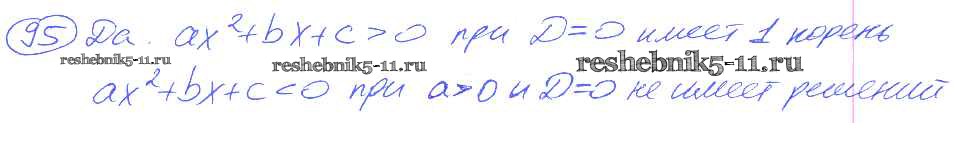 95 Да. ax²+bx+c>0 при D=0 имеет 1 корень
reshebnik5-11.ru reshebnik5-11.ru reshebnik5-11.ru
ax²+bx+c<0 при a>0 и D=0 не имеет решений